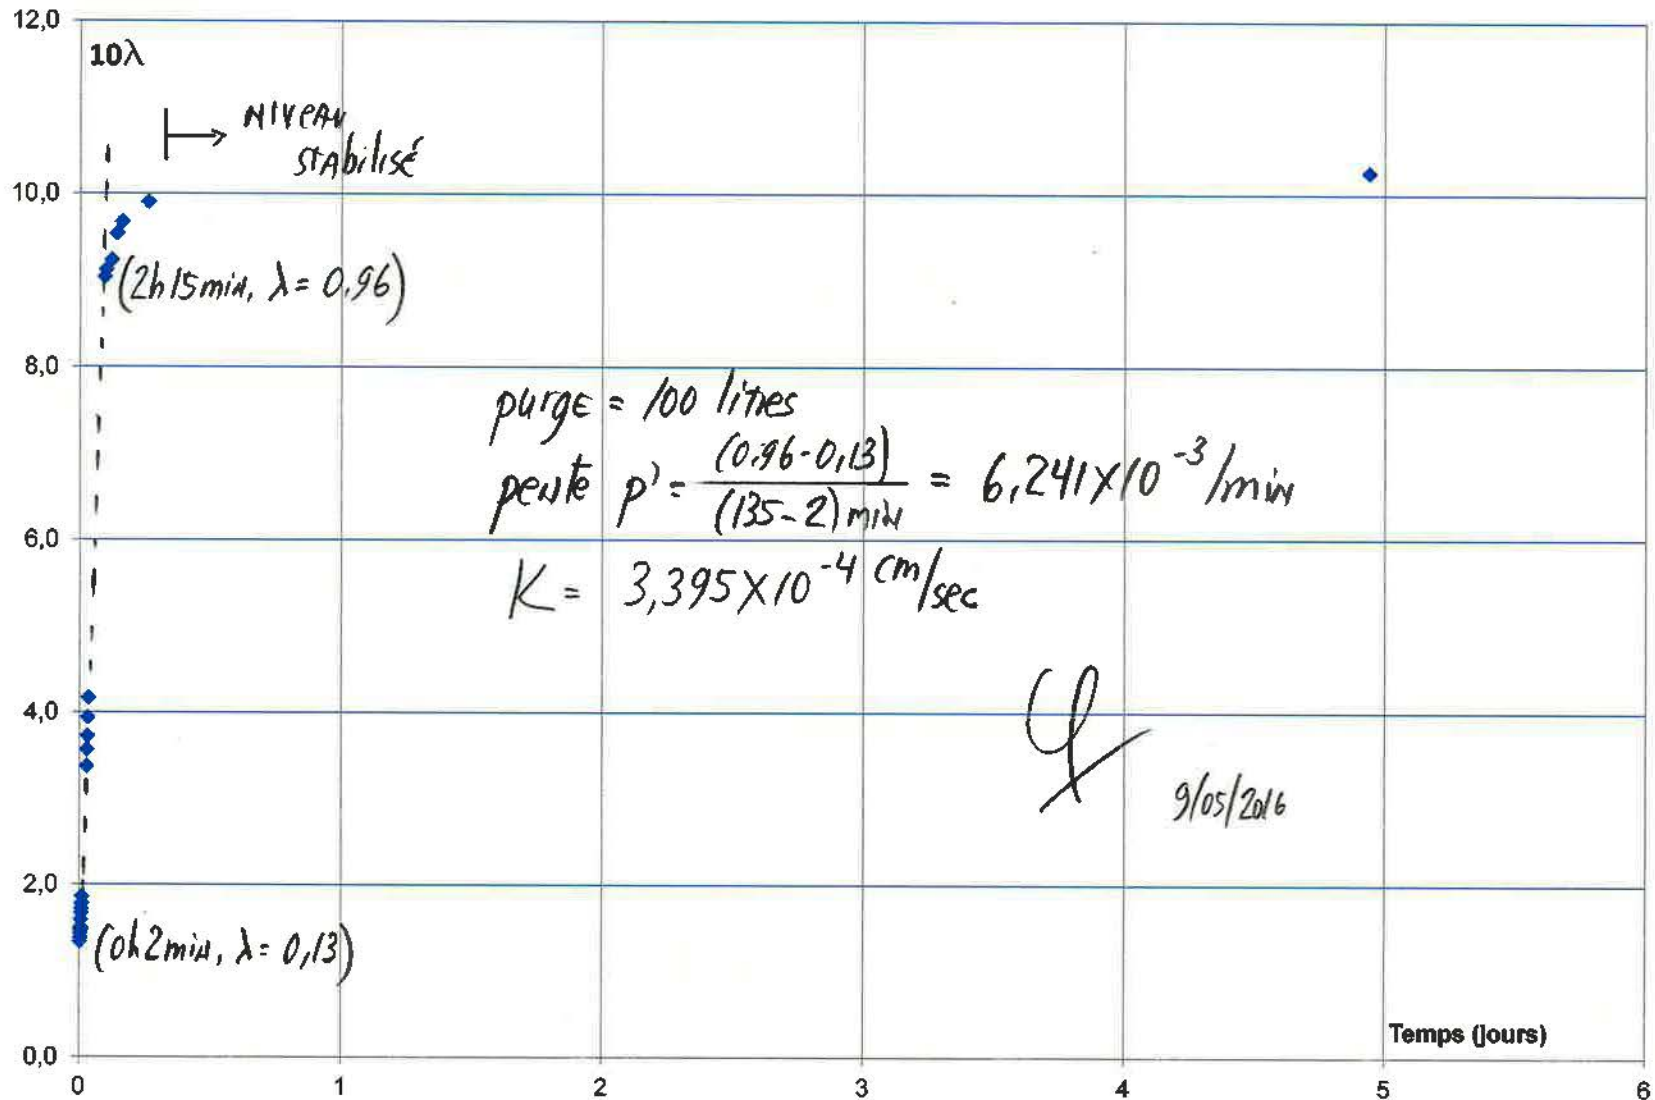 12,0
10λ
NIVEAU
STABILISÉ
10,0
(2h15min, λ= 0.96)
8,0
purge = 100 litres
pente p' = (0.96-0,13) / (135-2) min = 6,241X10⁻³/min
6,0
K = 3,395X10⁻⁴ cm/sec
4,0
9/05/2016
2,0
(0h2min, λ= 0,13)
Temps (jours)
0,0
0 1 2 3 4 5 6